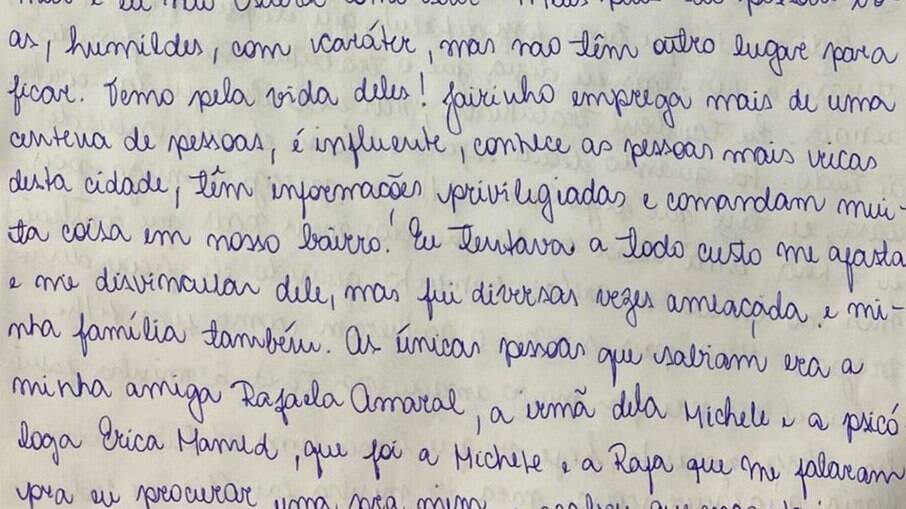 as, humildes, com caráter, mas não têm outro lugar para
ficar. Temo pela vida deles! Jairinho emprega mais de uma
centena de pessoas, é influente, conhece as pessoas mais ricas
desta cidade, têm informações privilegiadas e comandam mui-
ta coisa em nosso bairro! Eu tentava a todo custo me afasta
e me desvincular dele, mas fui diversas vezes ameaçada e mi-
nha família também. As únicas pessoas que sabiam era a
minha amiga Rafaela Amaral, a irmã dela Michele e a psicó
loga Erica Mamed, que foi a Michele e a Rafa que me falaram
pra eu procurar uma pra mim